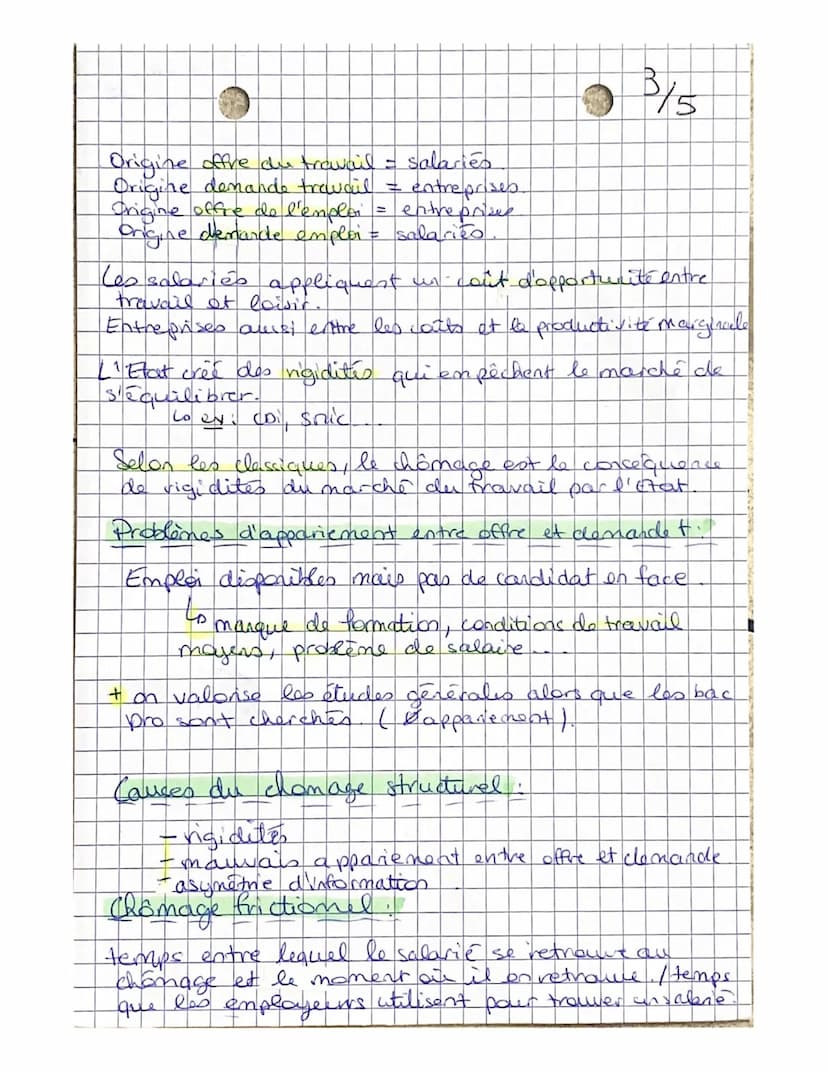 3/5
Origine offre du travail = salariés
Origine demande travail = entreprises
Origine offre de l'emploi = entreprises
Origine demande emploi = salariés.
Les salariés appliquent un coût d'opportunité entre
travail et loisir.
Entreprises aussi entre les coûts et la productivité marginale
L'Etat créé des rigidités qui empêchent le marché de
s'équilibrer.
↳ ex : CDI, smic...
Selon les classiques, le chômage est la conséquence
de rigidités du marché du travail par l'état.
Problèmes d'appariement entre offre et demande t :
Emploi disponibles mais pas de candidat en face.
↳ manque de formation, conditions de travail
moyens, problème de salaire...
+ on valorise les études générales alors que les bac
pro sont cherchés. ( appariement ).
Causes du chomage structurel :
- rigidités
- mauvais appariement entre offre et demande
- asymétrie d'information
Chômage frictionel :
temps entre lequel le salarié se retrouve au
chômage et le moment où il en retrouve. / temps
que les employeurs utilisent pour trouver un salarié.